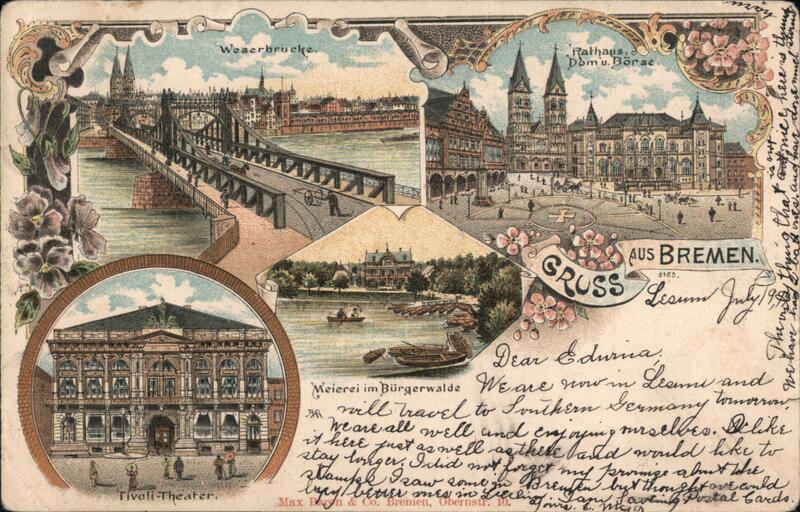 Weserbrücke.
Rathaus,
Dom u. Börse
GRUSS AUS BREMEN.
3163.
Meierei im Bürgerwalde
Tivoli-Theater.
Max Bayon & Co. Bremen, Obernstr. 10.
Lesum July 199
Dear Edwina.
We are now in Lesum and
will travel to Southern Germany tomorrow.
We are all well and enjoying ourselves. I like
it here just as well as there and would like to
stay longer. I did not forget my promise about the
stamps. I saw some in Bremen but thought we could
buy better ones in I am saving Postal Cards.
Yours. E. Meier
The only is that here is
we have had and have